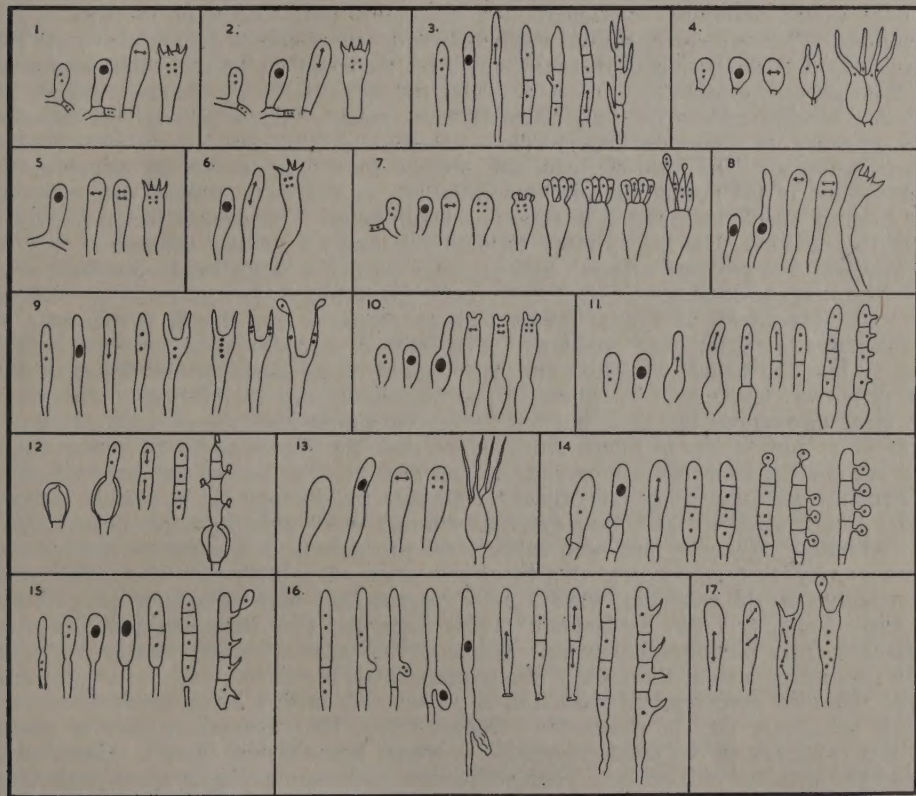 1.
2.
3.
4.
5.
6.
7.
8
9
10.
11.
12
13.
14
15
16.
17.